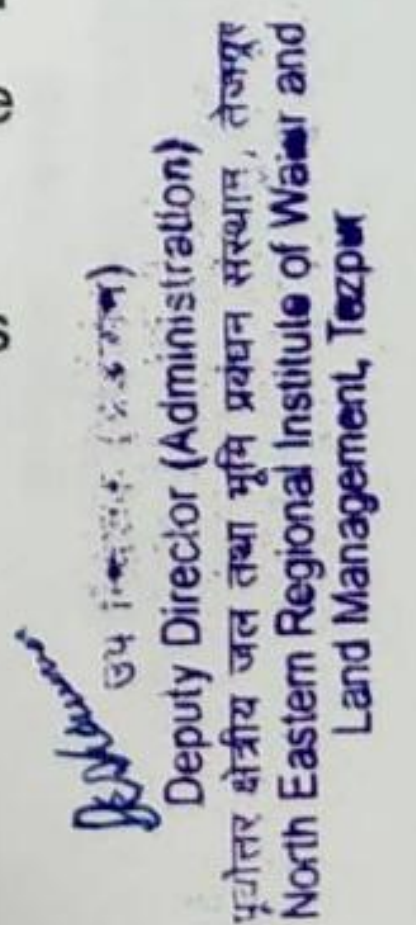 उप
Deputy Director (Administration)
पूर्वोत्तर क्षेत्रीय जल तथा भूमि प्रबंधन संस्थान, तेजपुर
North Eastern Regional Institute of Water and
Land Management, Tezpur